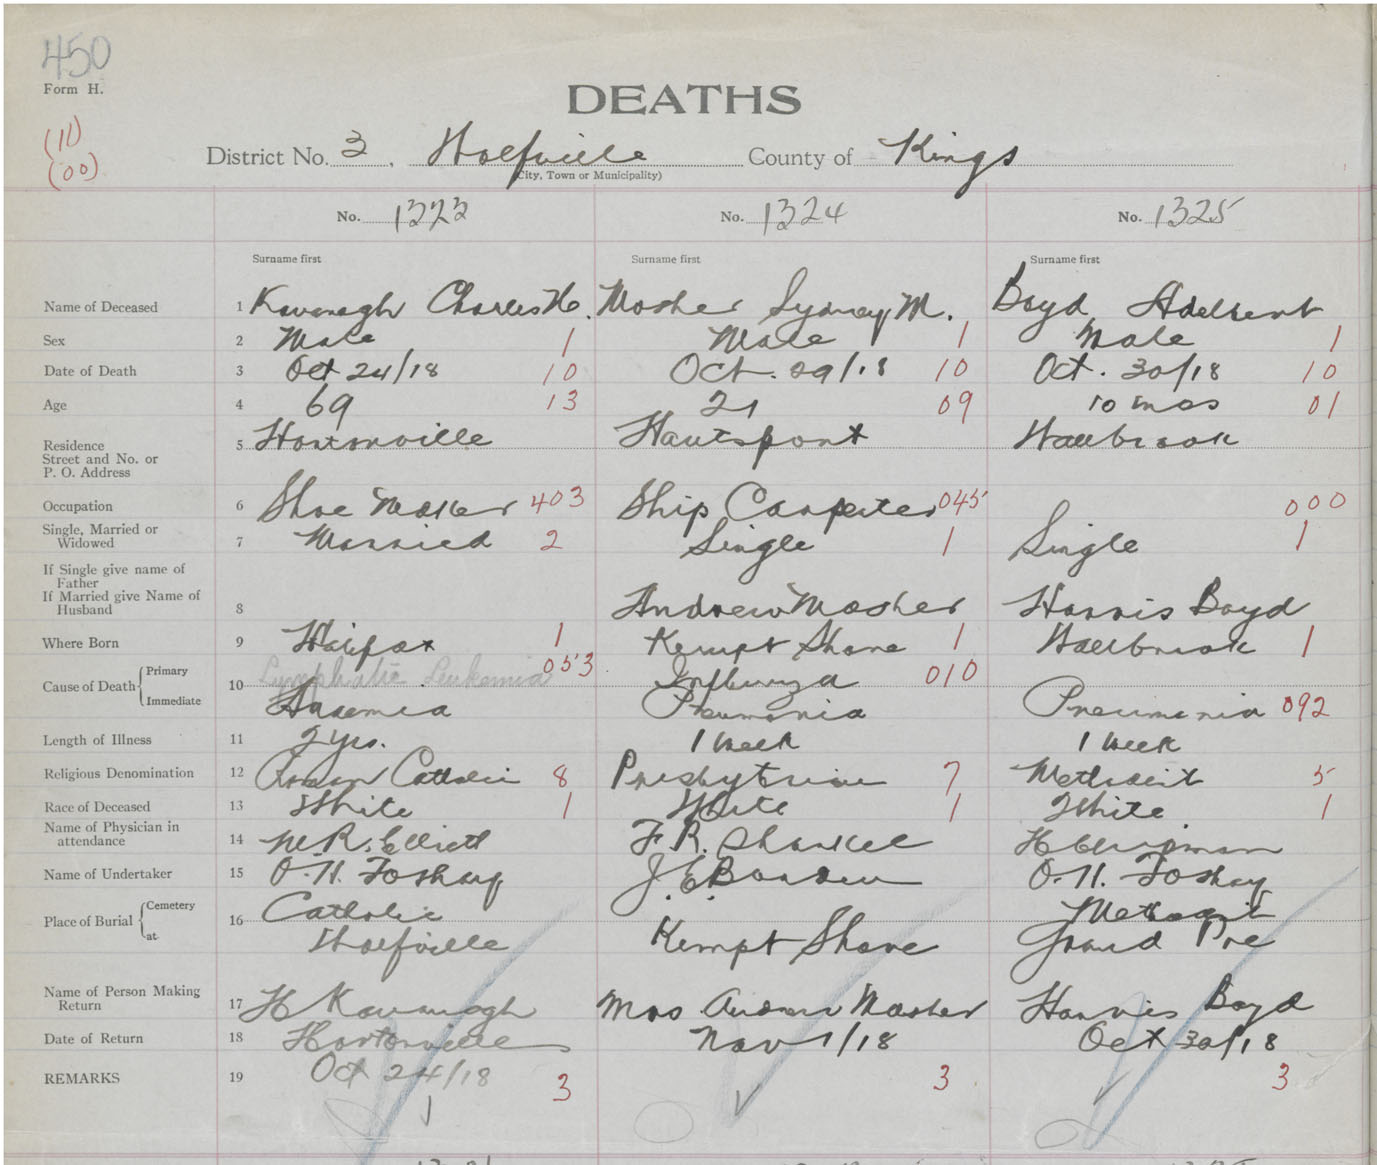 450
Form H.
DEATHS
(11)
(00)
District No. 3, Wolfville County of Kings
(City, Town or Municipality)
No. 1323 No. 1324 No. 1325
Surname first Surname first Surname first
Name of Deceased 1 Kavanagh Charles H. Mosher Sydney M. Boyd Adelbert
Sex 2 Male 1 Male 1 Male 1
Date of Death 3 Oct 24/18 10 Oct. 29/18 10 Oct. 30/18 10
Age 4 69 13 21 09 10 mos 01
Residence
Street and No. or
P. O. Address
5 Hortonville Hantsport Wallbrook
Occupation 6 Shoe Maker 403 Ship Carpenter 045 000
Single, Married or
Widowed
7 Married 2 Single 1 Single 1
If Single give name of
Father
If Married give Name of
Husband
8 Andrew Mosher Harris Boyd
Where Born 9 Halifax 1 Kempt Shore 1 Wallbrook 1
Cause of Death Primary Lymphatic Leukemia 053 Influenza 010
10
Immediate Anaemia Pneumonia Pneumonia 092
Length of Illness 11 2 yrs. 1 Week 1 Week
Religious Denomination 12 Roman Catholic 8 Presbyterian 7 Methodist 5
Race of Deceased 13 White 1 White 1 White 1
Name of Physician in
attendance
14 M.R. Elliott F.R. Shankel
Name of Undertaker 15 O.H. Foshay J.E. Borden O.H. Foshay
Place of Burial Cemetery 16 Catholic Methodist
at Wolfville Kempt Shore Grand Pre
Name of Person Making
Return
17 H Kavanagh Mrs Andrew Mosher Harris Boyd
Date of Return 18 Hortonville Nov 1/18 Oct 30/18
REMARKS 19 Oct 24/18 3 3 3